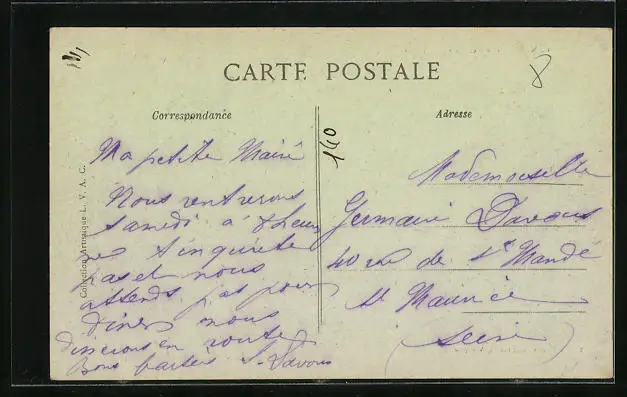 CARTE POSTALE
Correspondance
Adresse
Collection Artistique L. V. A. C.
140
8
Ma petite
Nous rentrerons
samedi à 8 heu
res t'inquiete
pas et nous
attends pas pour
diner nous
dinerons en route
Bons
Mademoiselle
Germaine
40 rue de St Mandé
St Maurice
(Seine)